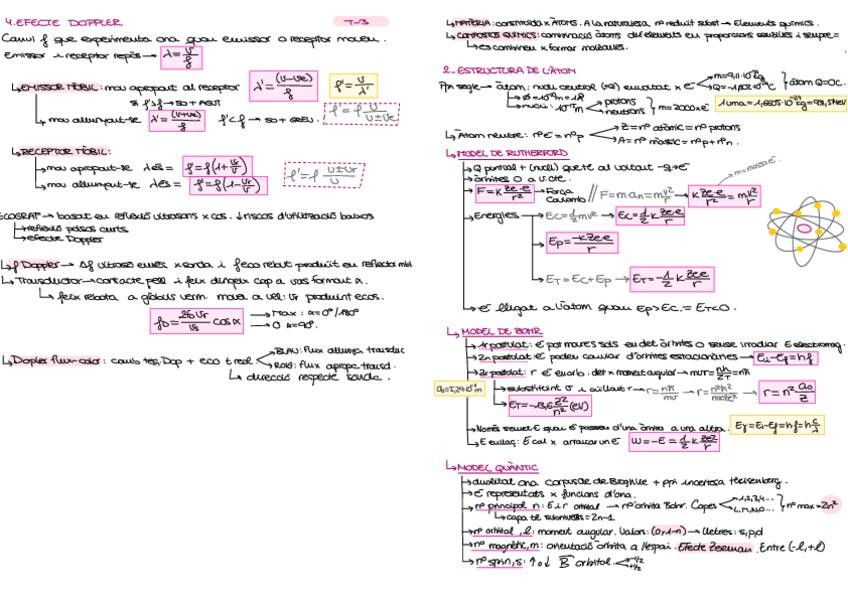 4. EFECTE DOPPLER
T-3
Canvi f que experimenta ona quan emissor o receptor mouen.
emissor i receptor repòs → λ = v/f
↳ EMISSOR MÒBIL: mou apropant al receptor λ' = (v-ve)/f f' = v/λ'
si f'>f → so + AGUT
mou allunyant-se λ' = (v+ve)/f f'<f → so + GREU. f' = f v/(v±ve)
↳ RECEPTOR MÒBIL:
mou apropant-se λ és = f' = f(1 + vr/v) f' = f (v±vr)/v
mou allunyant-se λ és = f' = f(1 - vr/v)
ECOGRAF → basat en reflexió ultrasons x cos. ↓riscos d'utilització baixos
reflexió polsos curts
efecte Doppler
↳ f Doppler → Δf ultrasò enviés x sonda i f eco rebut produït en reflectir
↳ Transductor → contacte pell i feix dirigeix cap a vas formant α.
↳ feix rebota a glòbuls verm. mouen a vel: vr produint ecos.
fD = 2fo vr/vs cos α → Màx: α=0°/180°
→ 0 α=90°.
↳ Doppler flux-color: comb teq. Dop + eco t real BLAU: flux allunya transduc
ROIG: flux apropa transd.
↳ direcció respecte sonda.
↳ MATÈRIA: constituïda x ÀTOMS. A la naturalesa nº reduït subst → Elements químics.
↳ COMPOSTOS QUÍMICS: combinació àtoms dif elements en proporcions senzilles i sempre =
↳ es combinen x formar molècules.
2. ESTRUCTURA DE L'ÀTOM
Ppi segle → àtom: nucli central (+Q) envoltat x e⁻ m = 9,11·10⁻³¹ kg
Q = -1,602·10⁻¹⁹C } àtom Q=0C.
Ø = 10⁻¹⁰m = 1Å
nucli: 10⁻¹⁵m protons
neutrons } m = 2000 x e⁻ 1uma = 1,6605·10⁻²⁷kg = 931,5MeV
↳ Àtom neutre: nº e⁻ = nº p Z = nº atòmic = nº protons
A = nº màssic = nº p + nº n.
↳ MODEL DE RUTHERFORD
Q puntual + (nucli) que té al voltant -q → e⁻
òrbites O a v.cte. m = massa e⁻.
F = K Ze·e/r² → Força Coulomb // F = m·an = m v²/r → K Ze·e/r² = m v²/r
Energies → Ec = ½mv² → Ec = ½ K Ze·e/r
Ep = -K Ze·e/r
ET = Ec + Ep → ET = -½ K Ze·e/r
e⁻ lligat a l'àtom quan Ep > Ec. = ET<0.
↳ MODEL DE BOHR
1r postulat: e⁻ pot moure's sols en det òrbites O sense irradiar E electromag.
2n postulat: e⁻ podeu canviar d'òrbites estacionàries → Ei - Ef = hf
3r postulat: r e⁻ en orb. det x moment angular → mvr = nh/2π = nħ
a₀ = 5,29·10⁻¹¹m
substituint v i aïllant r → r = nħ/mv → r = n² a₀/Z
ET = -13,6 Z²/n² (eV)
Només s'emet E quan e⁻ passen d'una òrbita a una altra. Eγ = Ei - Ef = hf = h c/λ
E enllaç: E cal x arrancar un e⁻ W = -E = ½ K Ze²/r
↳ MODEL QUÀNTIC
dualitat ona corpuscle de Broglie + ppi incertesa Heisenberg.
e⁻ representats x funcions d'ona.
nº principal n: E i r orbital → nº òrbita Bohr. Capes 1,2,3,4...
K,L,M,N,O... } nº màx = 2n²
capa té subnivells = 2n-1
nº orbital, l: moment angular. Valors: (0, 1-n) → lletres: s, p, d
nº magnètic, m: orientació òrbita a l'espai. Efecte Zeeman. Entre (-l,+l)
nº spin, s: ↑ o ↓ B orbital. -1/2
+1/2